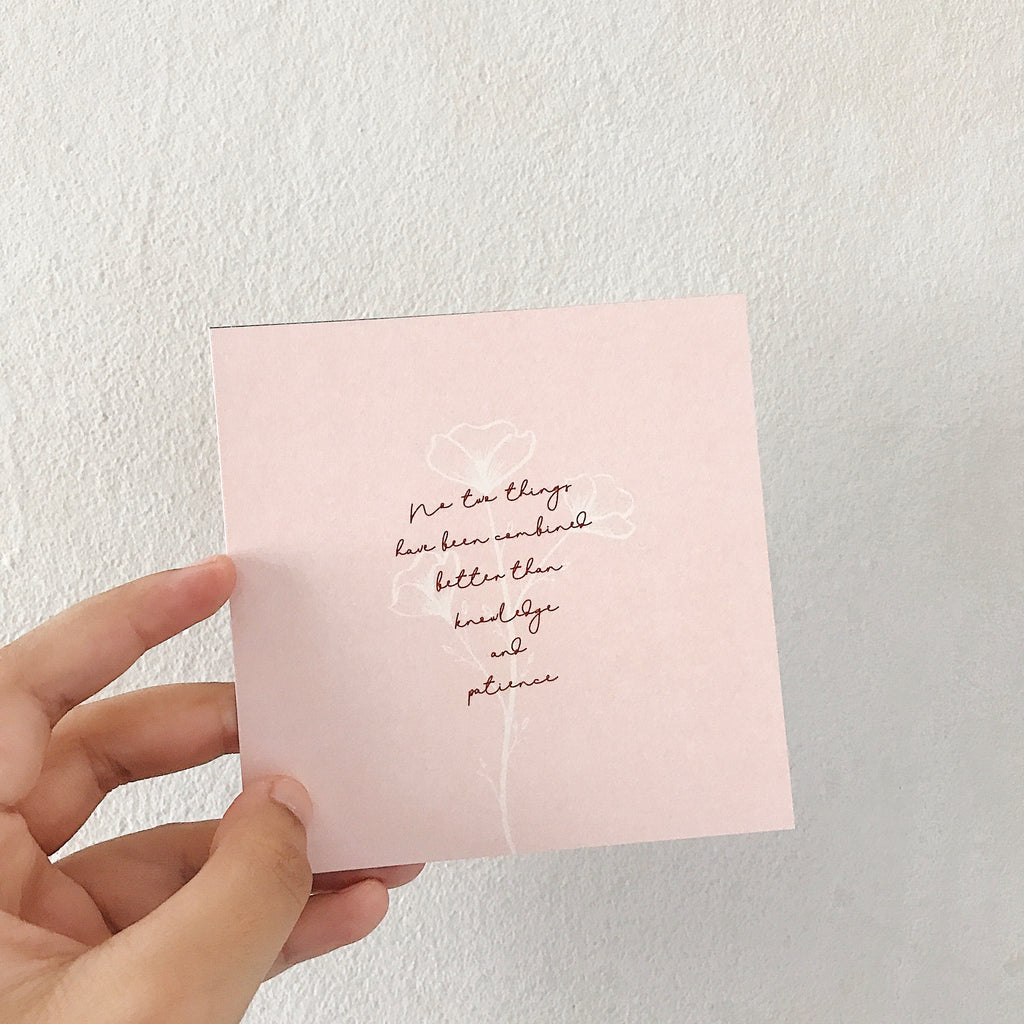 No two things
have been combined
better than
knowledge
and
patience